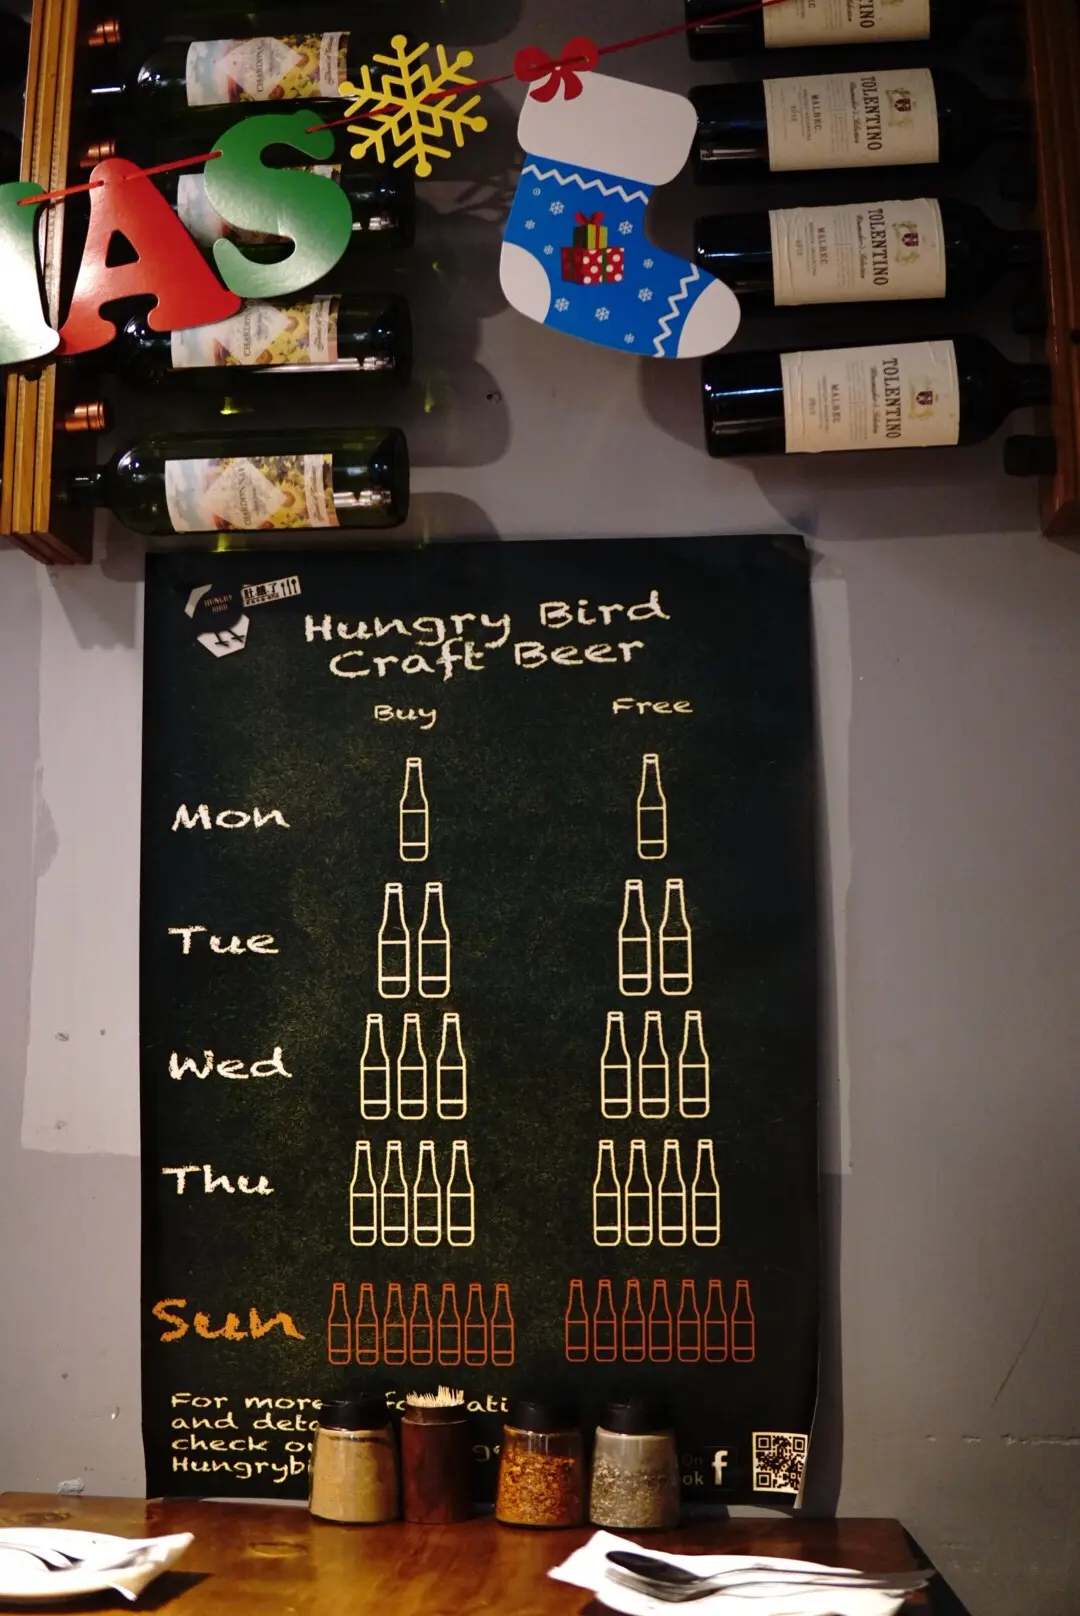 AS
TOLENTINO
MALBEC
TOLENTINO
MALBEC
TOLENTINO
MALBEC
HUNGRY
BIRD
肚餓了
Hungry Bird
Craft Beer
Buy Free
Mon
Tue
Wed
Thu
Sun
For more
and
check
f